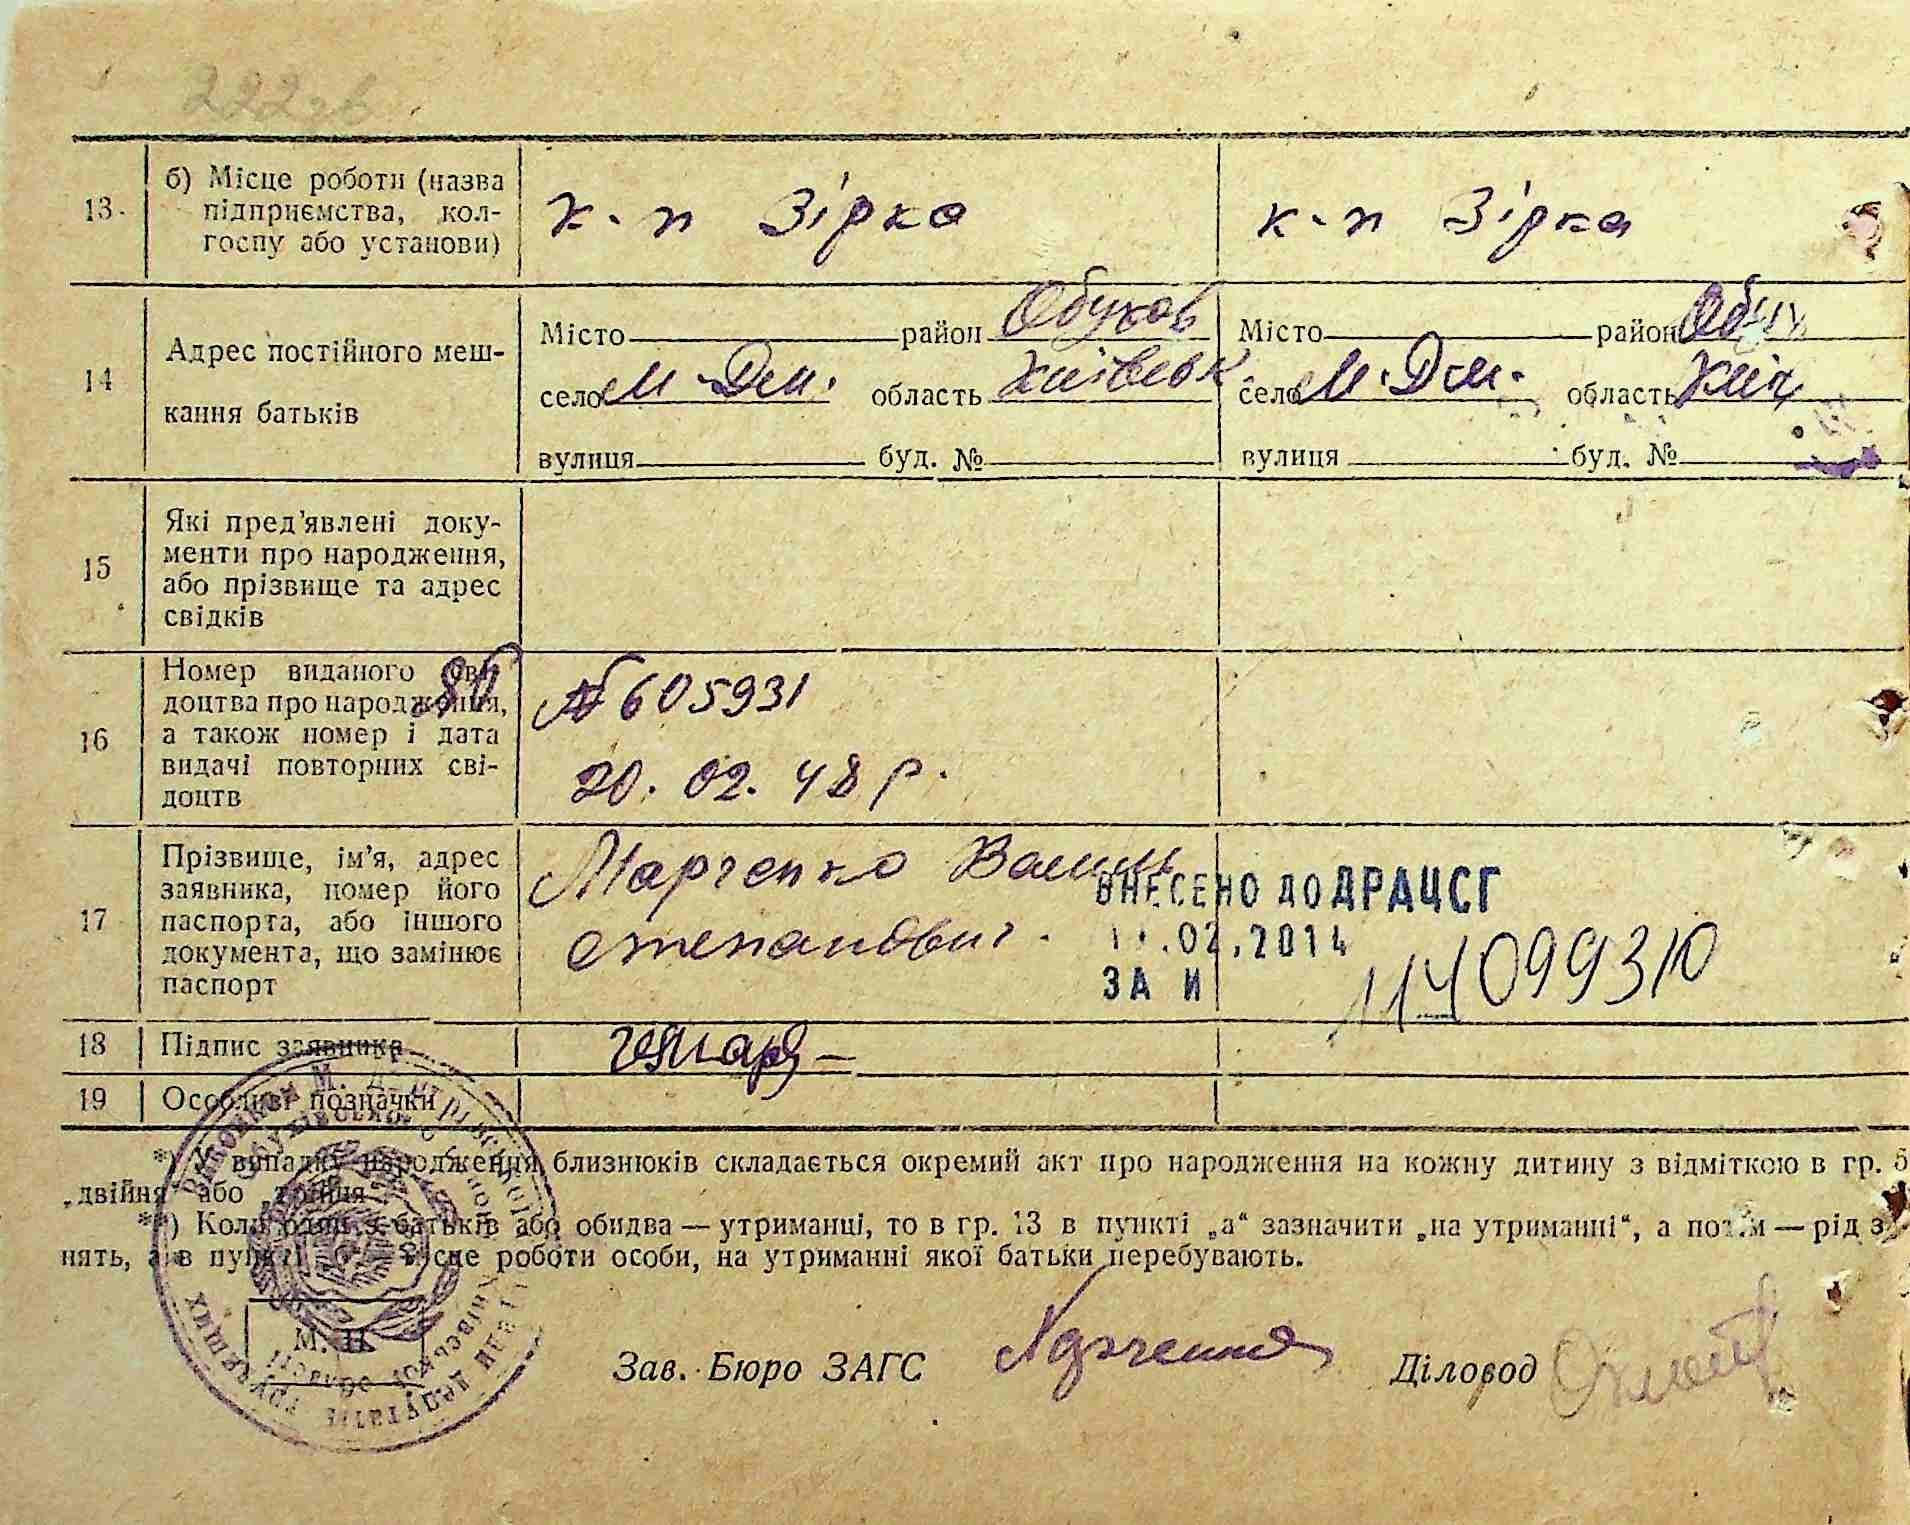 222
13
б) Місце роботи (назва
підприємства, кол-
госпу або установи)
к-п Зірка
к-п Зірка
14
Адрес постійного меш-
кання батьків
Місто район Обухов
село М-Дм. область Київськ.
вулиця буд. №
Місто район Обух
село М.Дм. область Київ
вулиця буд. №
15
Які пред'явлені доку-
менти про народження,
або прізвище та адрес
свідків
16
Номер виданого сві-
доцтва про народження,
а також номер і дата
видачі повторних сві-
доцтв
№605931
20. 02. 48 р.
17
Прізвище, ім'я, адрес
заявника, номер його
паспорта, або іншого
документа, що замінює
паспорт
Марченко
Степанович.
ВНЕСЕНО ДО ДРАЦСГ
.02.2014
ЗА №
18
Підпис заявника
19
Особливі позначки
*) У випадку народження близнюків складається окремий акт про народження на кожну дитину з відміткою в гр. 5
„двійня“ або „трійня“
**) Коли один з батьків або обидва — утриманці, то в гр. 13 в пункті „а“ зазначити „на утриманні“, а потім — рід за-
нять, а в пункті місце роботи особи, на утриманні якої батьки перебувають.
М. П.
Зав. Бюро ЗАГС
Діловод